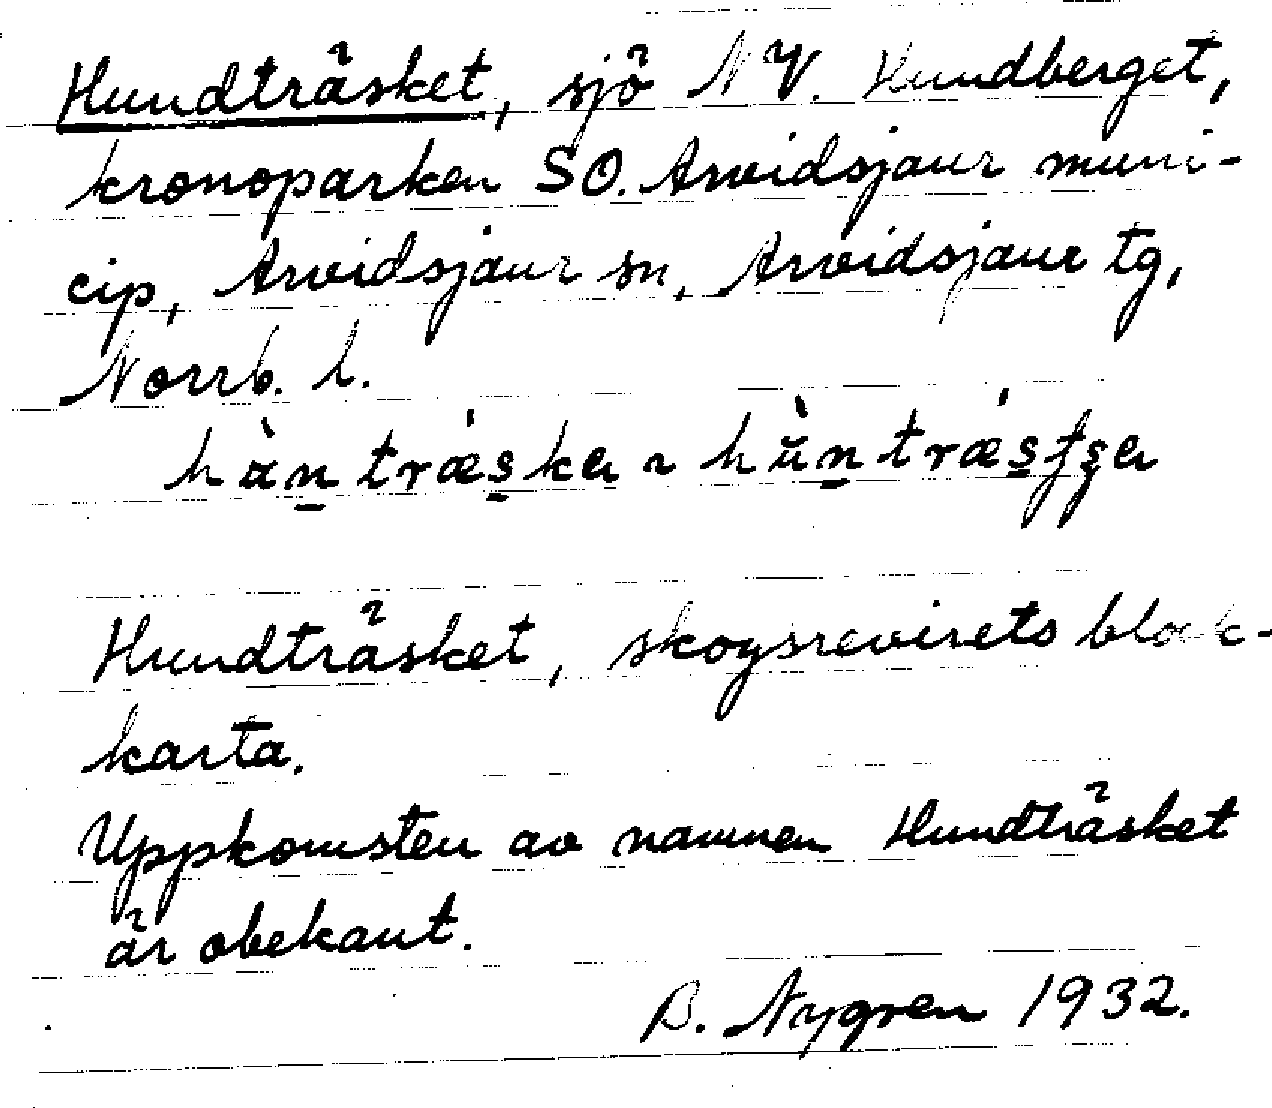 Hundträsket, sjö NV. Hundberget,
kronoparken SO. Arvidsjaur muni-
cip, Arvidsjaur sn, Arvidsjaur tg,
Norrb. l.
Hundträsket, skogsrevirets block-
karta.
Uppkomsten av namnen Hundträsket
är obekant.
B. Nygren 1932.